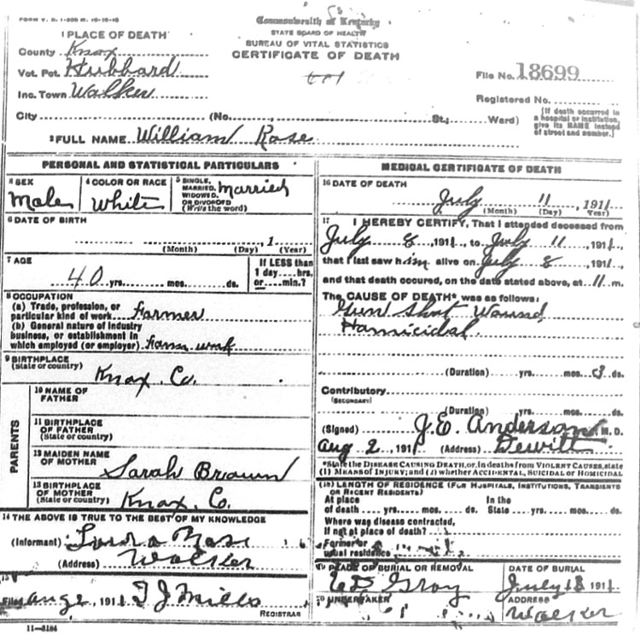 FORM V. S. 1-
Commonwealth of Kentucky
STATE BOARD OF HEALTH
BUREAU OF VITAL STATISTICS
CERTIFICATE OF DEATH
1 PLACE OF DEATH
County Knox
Vot. Pct. Hubbard
Inc. Town Walker
File No. 18699
Registered No.
City (No. St.; Ward)
(If death occurred in a hospital or institution, give its NAME instead of street and number.)
2 FULL NAME William Rose
PERSONAL AND STATISTICAL PARTICULARS
3 SEX
Male
4 COLOR OR RACE
White
5 SINGLE, MARRIED, WIDOWED, OR DIVORCED (Write the word)
Married
6 DATE OF BIRTH
1
(Month) (Day) (Year)
7 AGE
40 yrs. mos. ds.
If LESS than 1 day, hrs. or min.?
8 OCCUPATION
(a) Trade, profession, or particular kind of work Farmer
(b) General nature of industry business, or establishment in which employed (or employer) Farm work
9 BIRTHPLACE
(State or country)
Knox. Co.
PARENTS
10 NAME OF FATHER
11 BIRTHPLACE OF FATHER
(State or country)
12 MAIDEN NAME OF MOTHER
Sarah Brown
13 BIRTHPLACE OF MOTHER
(State or country)
Knox. Co.
14 THE ABOVE IS TRUE TO THE BEST OF MY KNOWLEDGE
(Informant)
(Address) Walker
15
Filed Aug 2, 1911 T J Mills
REGISTRAR
11-3184
MEDICAL CERTIFICATE OF DEATH
16 DATE OF DEATH
July 11, 1911
(Month) (Day) (Year)
17 I HEREBY CERTIFY, That I attended deceased from
July 8, 1911, to July 11, 1911,
that I last saw him alive on July 8, 1911,
and that death occurred, on the date stated above, at 11 m.
The CAUSE OF DEATH* was as follows:
Gun Shot Wound
Homicidal
(Duration) yrs. mos. 3 ds.
Contributory
(SECONDARY)
(Duration) yrs. mos. ds.
(Signed) J. E. Anderson M. D.
Aug 2, 1911 (Address) Dewitt
*State the DISEASE CAUSING DEATH, or, in deaths from VIOLENT CAUSES, state (1) MEANS OF INJURY; and (2) whether ACCIDENTAL, SUICIDAL or HOMICIDAL
18 LENGTH OF RESIDENCE (FOR HOSPITALS, INSTITUTIONS, TRANSIENTS OR RECENT RESIDENTS)
At place of death yrs. mos. ds. In the State yrs. mos. ds.
Where was disease contracted, if not at place of death?
Former or usual residence
19 PLACE OF BURIAL OR REMOVAL
Gray
DATE OF BURIAL
July 13 1911
20 UNDERTAKER
ADDRESS
Walker